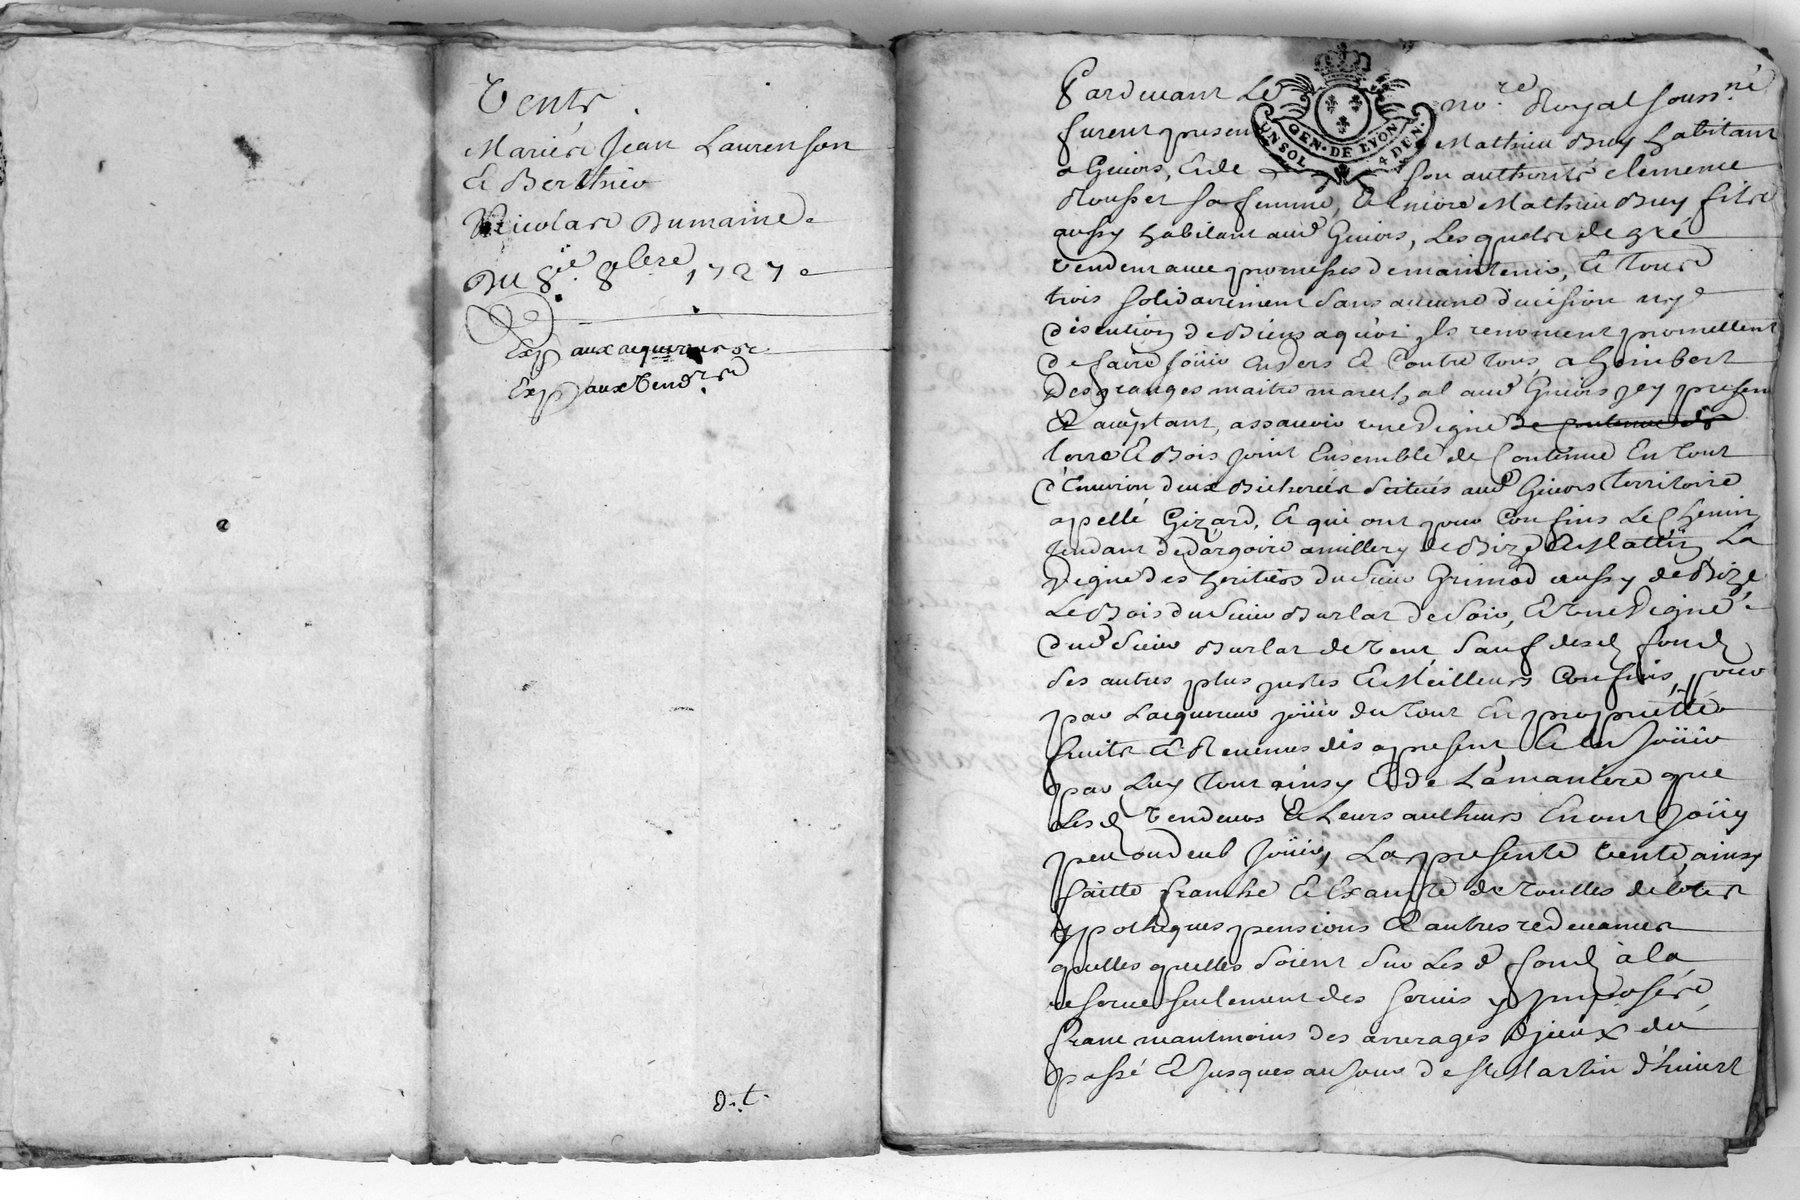 Vente
Mariés Jean Laurenson
Et Berthieu
Nicolas Dumaine
Du 8.ie 8bre 1727
Exp aux acquereurs
Exp aux Vendrs
d.t.
Pardevant Le no.re Royal sousné
furent presen Mathieu Buy habitant
a Givors, Et de son authorité clemence
Rousset sa femme, Et encore Mathieu Buy fils
aussy habitant aud Givors, Lesquels de gré
vendent avec promesses de maintenir, Et tous
trois solidairement sans aucune division ny
discution de Biens aquoi ils renoncent promettent
de faire jöuir Envers Et Contre tous, a himbert
Desgranges maitre mareschal aud Givors jcy presen
Et acceptant, assavoir une vigne de Contenue de
terre Et Bois joint Ensemble de Contenue En tout
d'Environ deux Bicherées scitués aud Givors Territoire
apellé Gizard, Et qui ont pour Confins Le Chemin
tendant de dargoire a millery de Bize Et Mattin, La
vigne des heritiers du sieur Grimod aussy de Bize
Le Bois du sieur Burlat de soir, Et une vigne
dud sieur Burlat de vent, Sauf desd fonds
des autres plus justes Et Meilleurs Confins, pour
par Lacquereur jöuir du tout En proprietté
fruits Et Revenus dès apresent Et En jöuir
par Luy tout ainsy Et de La maniere que
Lesd Vendeurs Et Leurs autheurs En ont jöüy
peu ou deub jöuir, La presente vente ainsy
faitte franche Et Exampte de touttes debtes
ypotheques pensions Et autres redevances
quelles quelles soient sur Lesd fonds à la
reserve seulement des servis y jmposés
franc neantmoins des arrerages d'jceux du
passé Et jusques au jour de st Martin d'hivert